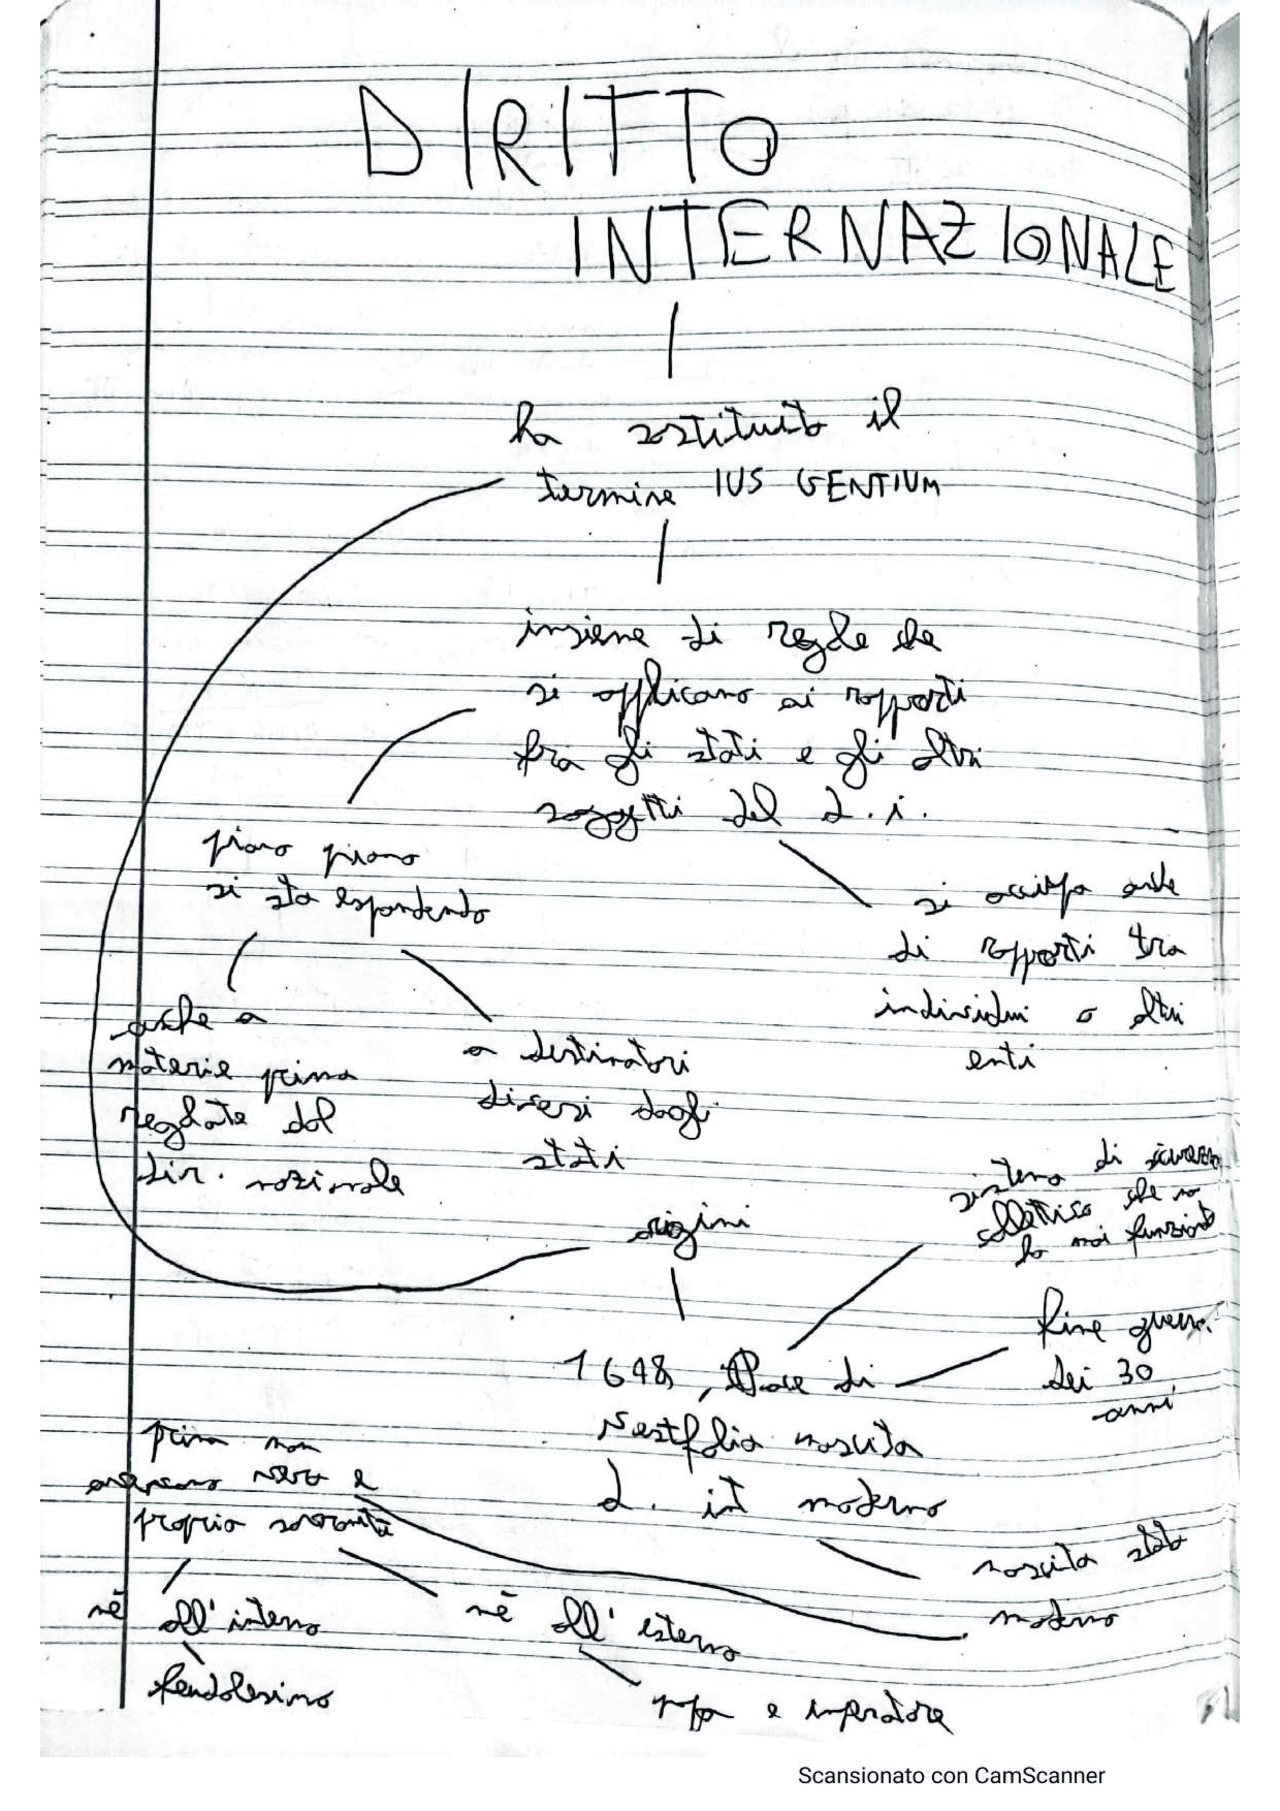 DIRITTO
INTERNAZIONALE
ha sostituito il
termine IUS GENTIUM
insieme di regole che
si applicano ai rapporti
fra gli stati e gli altri
soggetti del d.i.
piano piano
si sta espandendo
si occupa anche
di rapporti tra
individui o altri
enti
anche a
materie prima
regolate dal
dir. nazionale
a destinatari
diversi dagli
stati
sistema di sicurezza
collettiva che non
ha mai funzionato
origini
fine guerra
dei 30
anni
1648, Pace di
Vestfalia nascita
d. int moderno
prima non
avevano vera e
propria sovranità
nascita stato
moderno
nè all'interno
feudalesimo
nè all'esterno
papa e imperatore
Scansionato con CamScanner